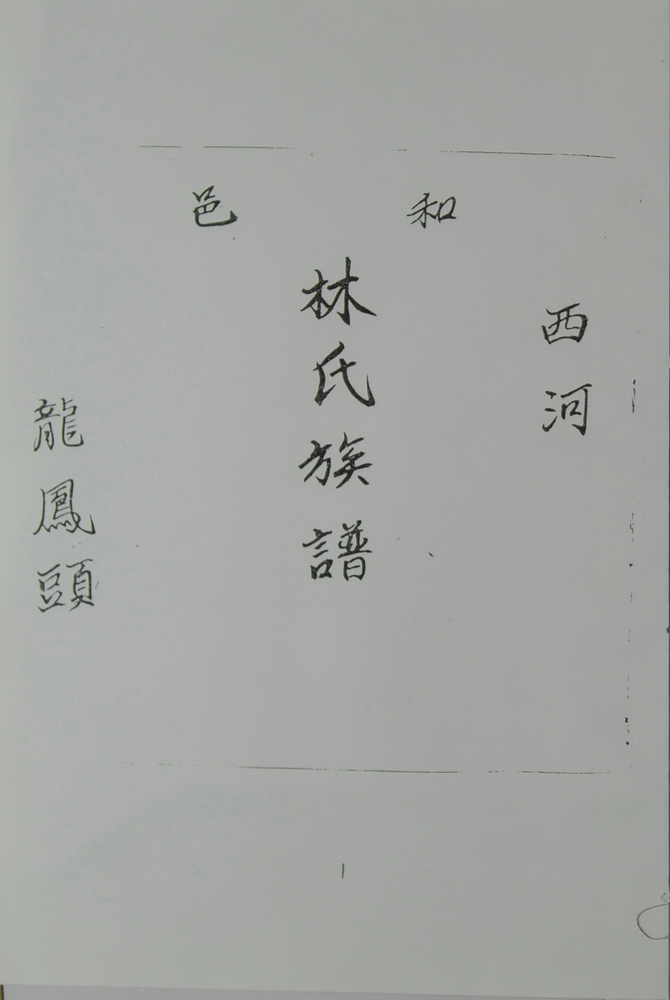 和邑
西河
林氏族譜
龍鳳頭
1